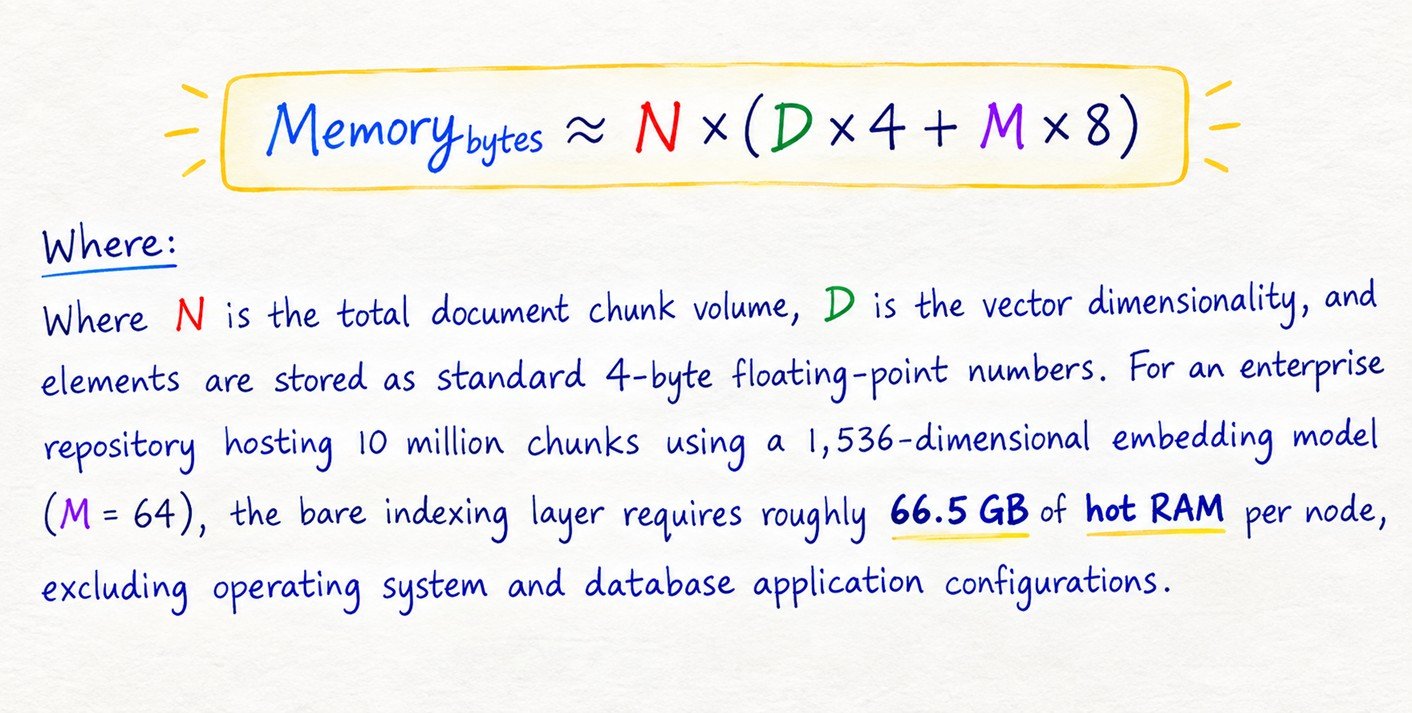 Memory bytes ≈ N × (D × 4 + M × 8)
Where:
Where N is the total document chunk volume, D is the vector dimensionality, and
elements are stored as standard 4-byte floating-point numbers. For an enterprise
repository hosting 10 million chunks using a 1,536-dimensional embedding model
(M = 64), the bare indexing layer requires roughly 66.5 GB of hot RAM per node,
excluding operating system and database application configurations.